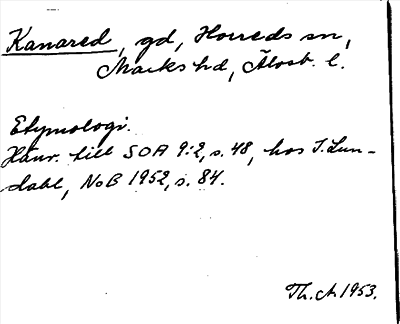 Kanared, gd, Horreds sn,
Marks hd, Älvsb. l.
Etymologi.
Hänv. till SOÄ 9:2, s. 48, hos I. Lun-
dahl, NoB 1952, s. 84.
Th. A 1953.